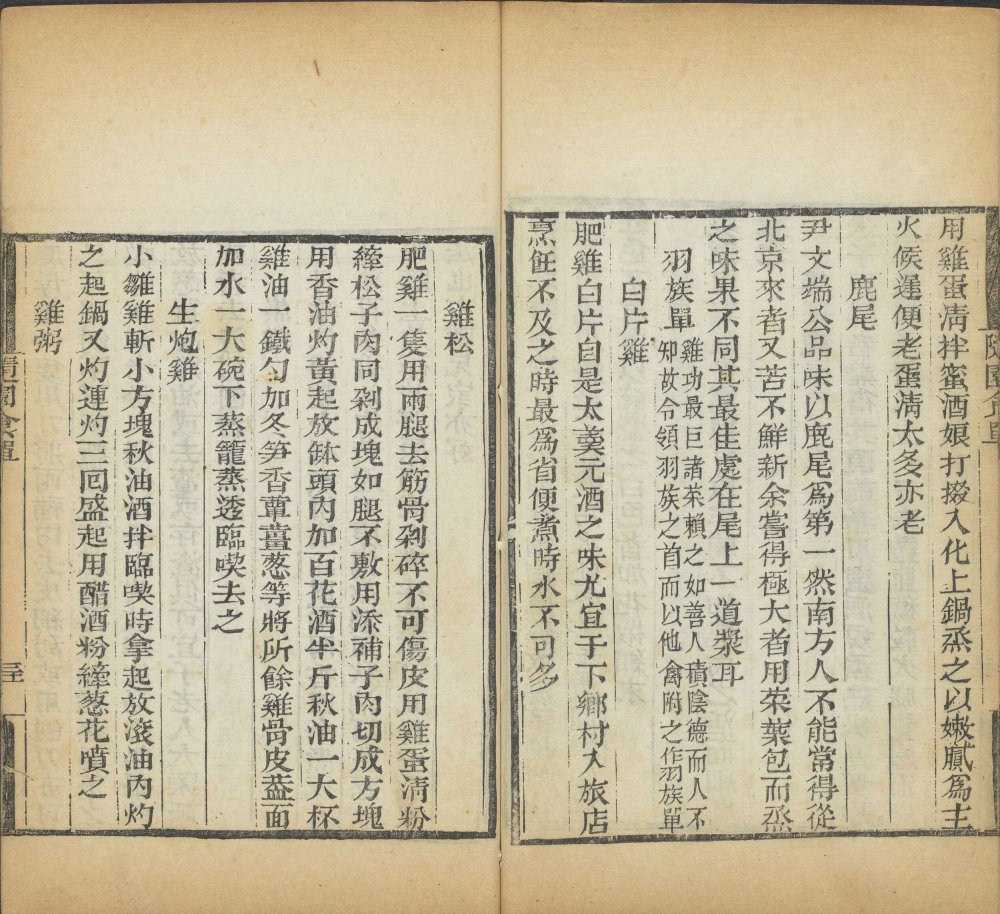 用雞蛋清拌蜜酒娘打掇入化上鍋蒸之以嫩膩為主
火候遲便老蛋清太多亦老
鹿尾
尹文端公品味以鹿尾為第一然南方人不能常得從
北京來者又苦不鮮新余嘗得極大者用菜葉包而蒸
之味果不同其最佳處在尾上一道漿耳
羽族單
雞功最巨諸菜賴之如善人積陰德而人不
知故令領羽族之首而以他禽附之作羽族單
白片雞
肥雞白片自是太羹元酒之味尤宜于下鄉村入旅店
烹飪不及之時最為省便煮時水不可多
雞松
肥雞一隻用兩腿去筋骨剁碎不可傷皮用雞蛋清粉
縴松子肉同剁成塊如腿不敷用添補子肉切成方塊
用香油灼黃起放缽頭內加百花酒半斤秋油一大杯
雞油一鐵勺加冬笋香蕈薑葱等將所餘雞骨皮葢面
加水一大碗下蒸籠蒸透臨喫去之
生炮雞
小雛雞斬小方塊秋油酒拌臨喫時拿起放滾油內灼
之起鍋又灼連灼三回盛起用醋酒粉縴葱花噴之
雞粥
隨園食單